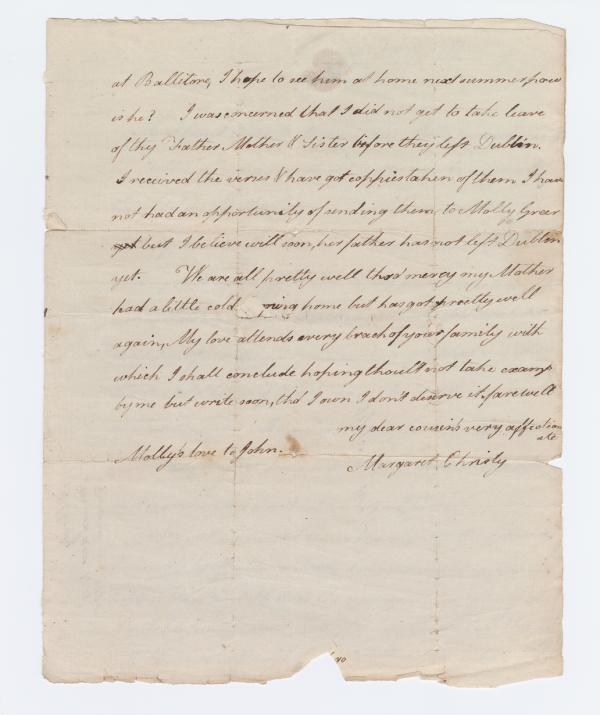 at Ballitore, I hope to see him at home next summer, how
is he? I was concerned that I did not get to take leave
of thy Father, Mother & Sister before they left Dublin.
I received the verses & have got coppies taken of them I have
not had an opportunity of sending them to Molly Greer
but I believe will soon, her father has not left Dublin
yet. We are all pretty well thro' mercy my Mother
had a little cold ning home but has got pretty well
again, My love attends every brach of your family with
which I shall conclude hoping thou'lt not take examp
by me but write soon, tho' I own I don't deserve it, farewell
my dear cousin's very affection
ate
Molly's love to John.
Margaret Christy